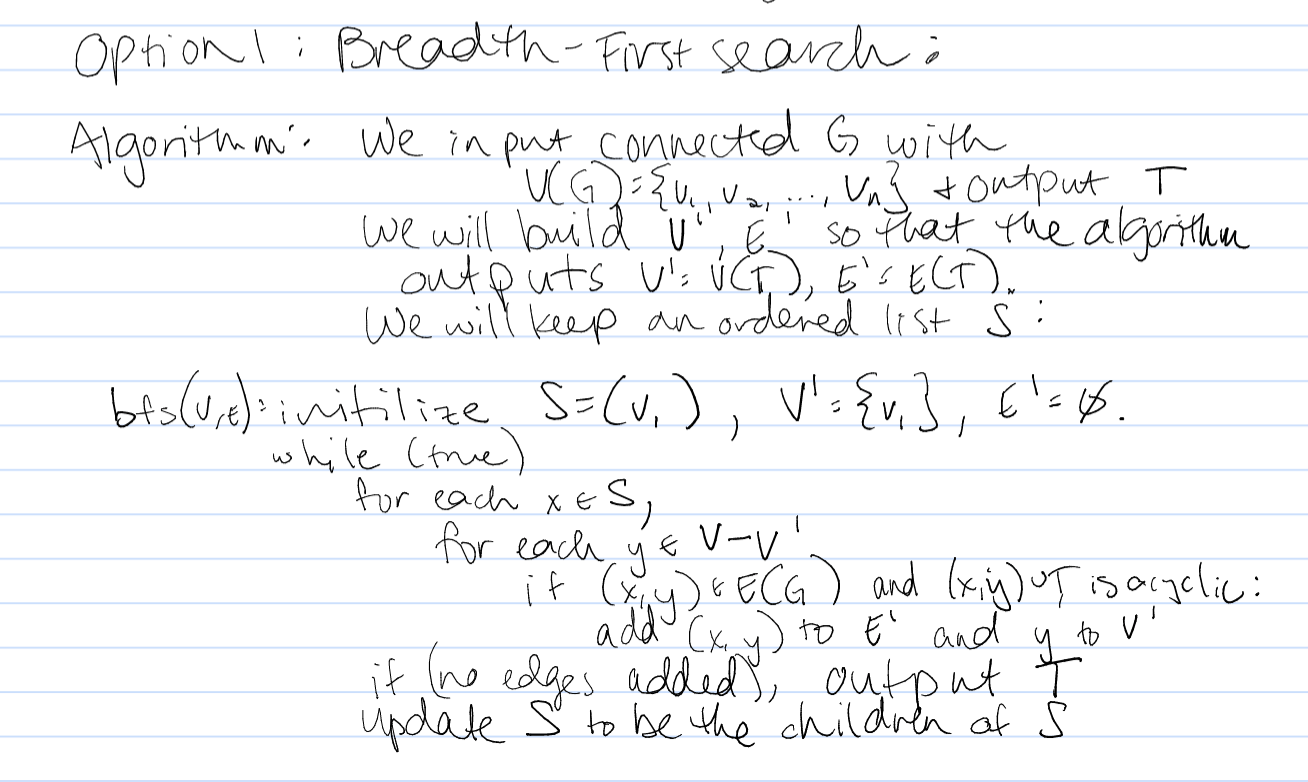 Option 1 : Breadth-First search :
Algorithm : We input connected G with
V(G)={v₁, v₂, ..., vₙ} + output T
We will build V', E' so that the algorithm
outputs V'=V(T), E'=E(T).
We will keep an ordered list S :
bfs(V,E): initilize S=(v₁), V'={v₁}, E'=∅.
while (true)
for each x ∈ S,
for each y ∈ V-V'
if (x,y) ∈ E(G) and (x,y)∪T is acyclic:
add (x,y) to E' and y to V'
if (no edges added), output T
update S to be the children of S